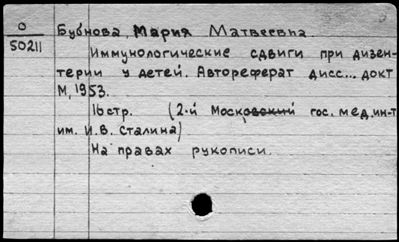 О
50211
Бубнова Мария Матвеевна
Иммунологические сдвиги при дизен-
терии у детей. Автореферат дисс... докт
М, 1953.
16 стр. (2-й Московский гос. мед. ин-т
им. И.В. Сталина)
На правах рукописи.